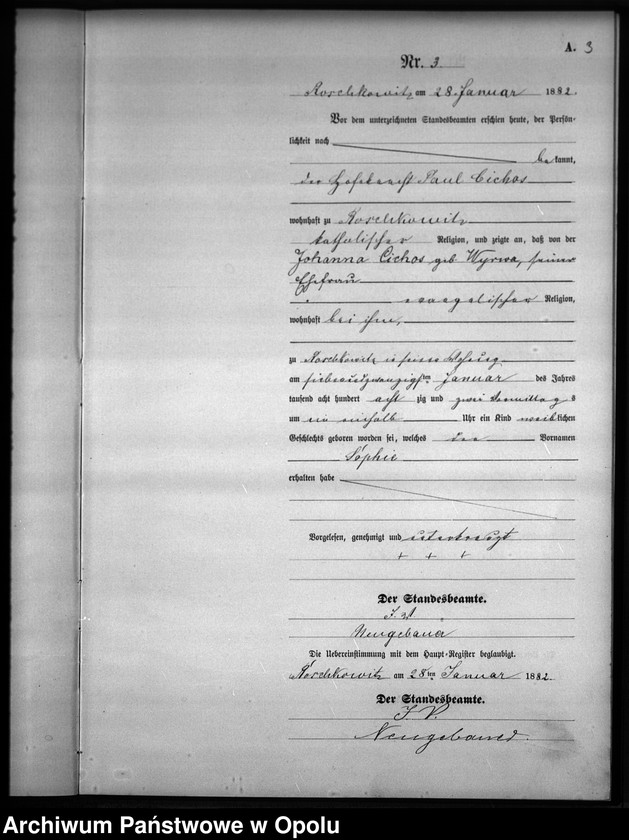 A. 3
Nr. 3.
Roschkowitz am 28. Januar 1882.
Vor dem unterzeichneten Standesbeamten erschien heute, der Persön-
lichkeit nach
bekannt,
der Hofeknecht Paul Cichos
wohnhaft zu Roschkowitz
katholischer Religion, und zeigte an, daß von der
Johanna Cichos geb. Wyrwa, seiner
Ehefrau
evangelischer Religion,
wohnhaft bei ihm,
zu Roschkowitz in seiner Wohnung
am siebenundzwanzigsten Januar des Jahres
tausend acht hundert acht zig und zwei Vormittags
um ein einhalb Uhr ein Kind weiblichen
Geschlechts geboren worden sei, welches den Vornamen
Sophie
erhalten habe
Vorgelesen, genehmigt und unterkreuzt
+ + +
Der Standesbeamte.
Neugebauer
Die Uebereinstimmung mit dem Haupt-Register beglaubigt.
Roschkowitz am 28ten Januar 1882.
Der Standesbeamte.
I. V.
Neugebauer.
Archiwum Państwowe w Opolu